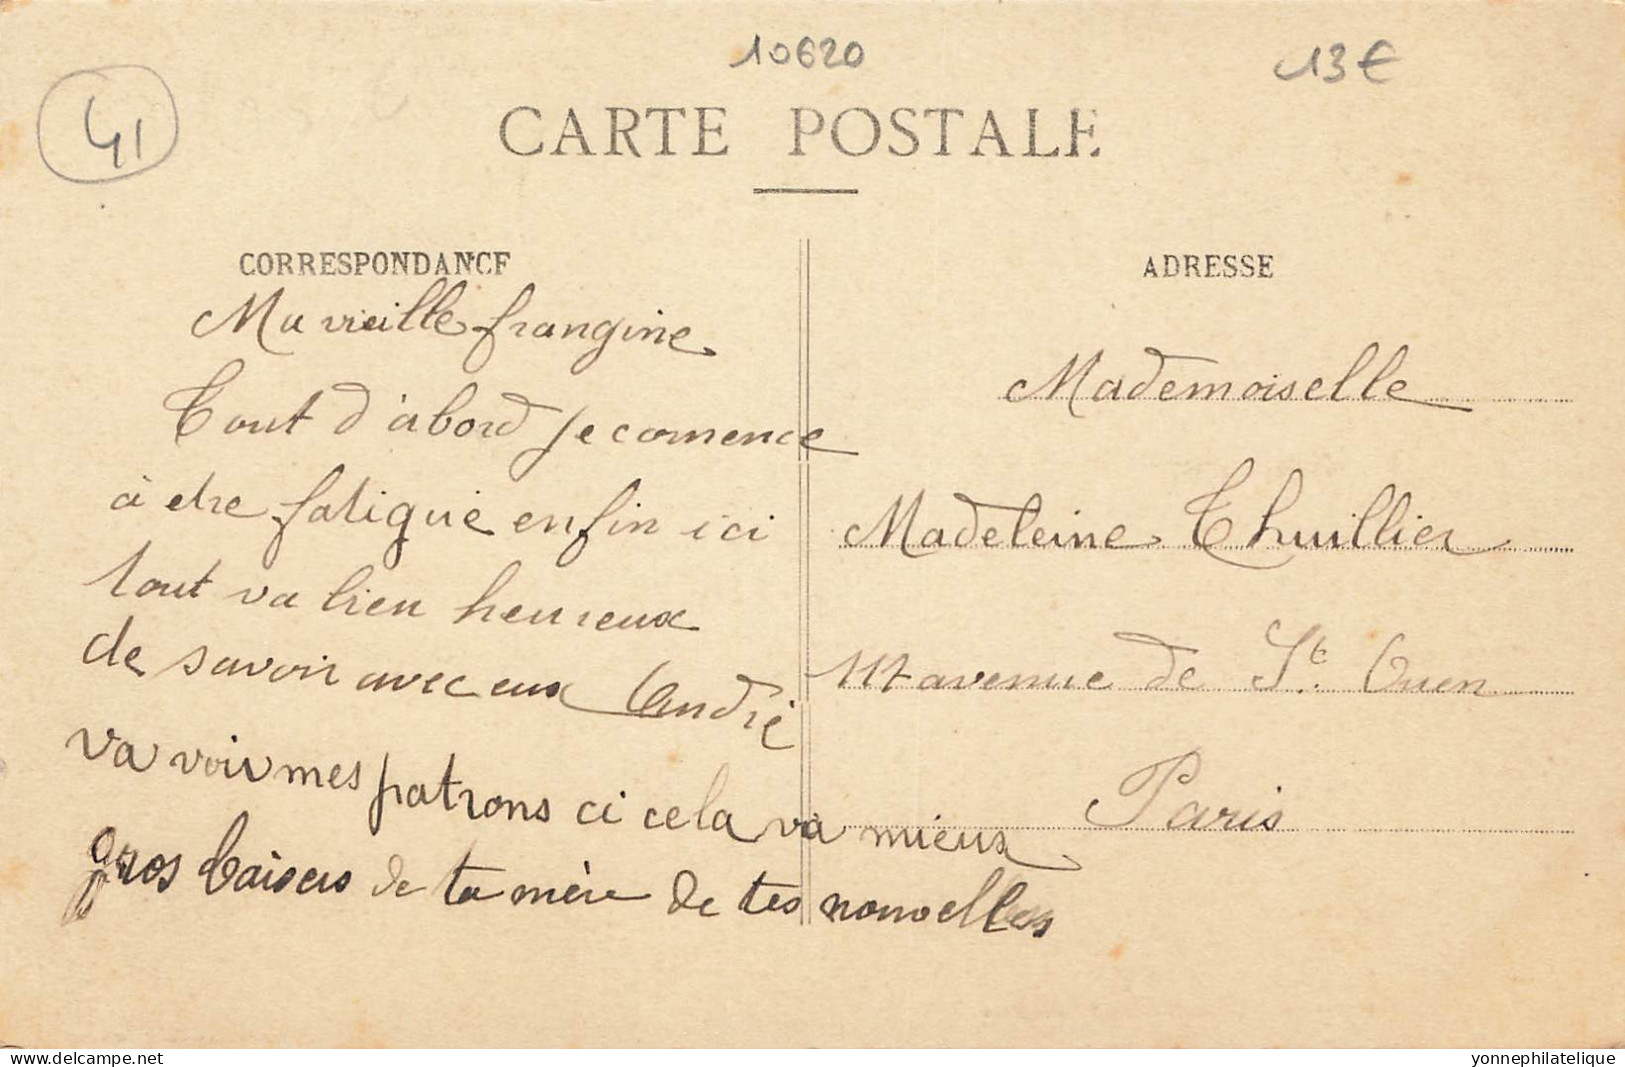 10620
13€
41
CARTE POSTALE
CORRESPONDANCE
Ma vieille frangine
Tout d'abord je comence
à etre fatigué enfin ici
tout va bien heureux
de savoir avec eux André
va voir mes patrons ci cela va mieux
gros baisers de ta mère de tes nouvelles
ADRESSE
Mademoiselle
Madeleine Thuillier
avenue de St. Ouen
Paris
www.delcampe.net
yonnephilatelique